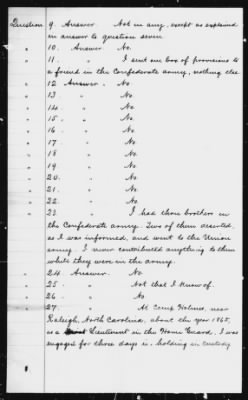 Question 9. Answer Not in any, except as explained
in answer to question seven.
" 10. Answer No.
" 11. " I sent one box of provisions to
a friend in the Confederate army, nothing else
" 12 Answer. No.
" 13 " No.
" 14 " No.
" 15. " No.
" 16 " No.
" 17 " No.
" 18 " No.
" 19 " No.
" 20. " No.
" 21. " No.
" 22 " No.
" 23. " I had three brothers in
the Confederate army. Two of them deserted,
as I was informed, and went to the Union
army. I never contributed anything to them
while they were in the army.
" 24. Answer. No
" 25 " Not that I know of.
" 26 " No
" 27. " At Camp Holmes, near
Raleigh, North Carolina, about the year 1865,
as a Lieutenant in the Home Guard, I was
engaged for three days in holding in custody